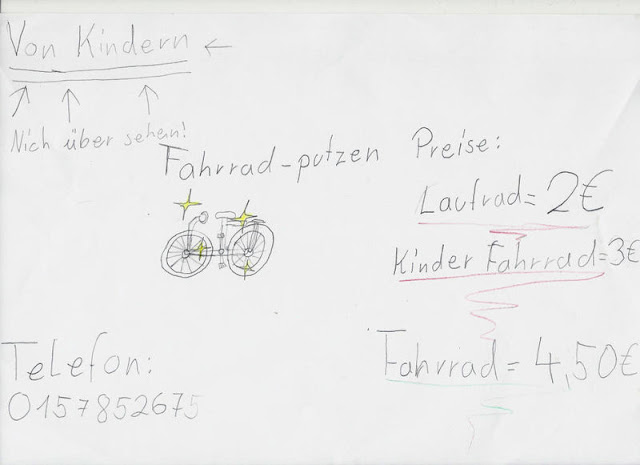 Von Kindern ←
Nich über sehen!
Fahrrad-putzen
Preise:
Laufrad = 2€
Kinder Fahrrad = 3€
Fahrrad = 4,50€
Telefon:
0157852675